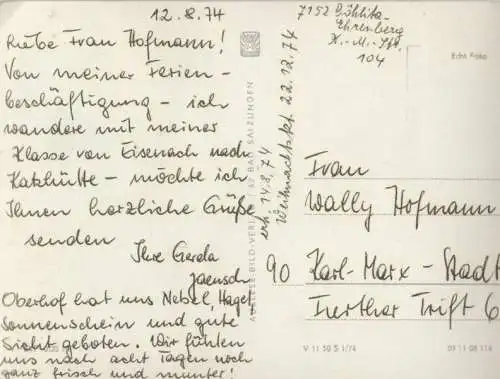 12.8.74
Liebe Frau Hofmann!
Von meiner Ferien-
beschäftigung - ich
wandere mit meiner
Klasse von Eisenach nach
Katzhütte - möchte ich
Ihnen herzliche Grüße
senden
Ihre Gerda
Jaensch
Oberhof hat uns Nebel, Hagel,
Sonnenschein und gute
Sicht geboten. Wir fühlen
uns nach acht Tagen noch
ganz frisch und munter!
BAD SALZUNGEN
erh. 14.8.74
Weihnachtskt. 22.12.74
7152 Böhlitz-
Ehrenberg
K.-M.-Str.
104
Echt Foto
Frau
Wally Hofmann
90 Karl-Marx-Stadt
Further Trift 6
V 11 50 S 1/74
09 11 08 114